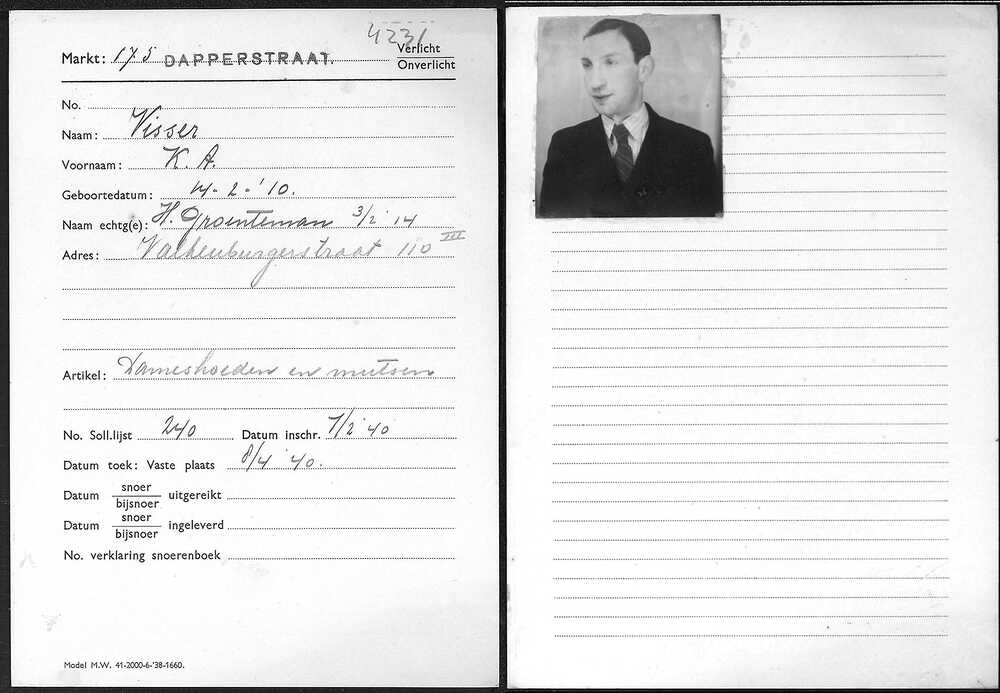 4231
Markt: 175 DAPPERSTRAAT. Verlicht
Onverlicht
No.
Naam: Visser
Voornaam: K. A.
Geboortedatum: 14-2-'10.
Naam echtg(e): H. Groenteman 3/2 '14
Adres: Valkenburgerstraat 110 III
Artikel: Dameshoeden en mutsen
No. Soll.lijst 240 Datum inschr. 7/2 '40
Datum toek: Vaste plaats 8/4 '40.
Datum snoer
bijsnoer uitgereikt
Datum snoer
bijsnoer ingeleverd
No. verklaring snoerenboek
Model M.W. 41-2000-6-'38-1660.